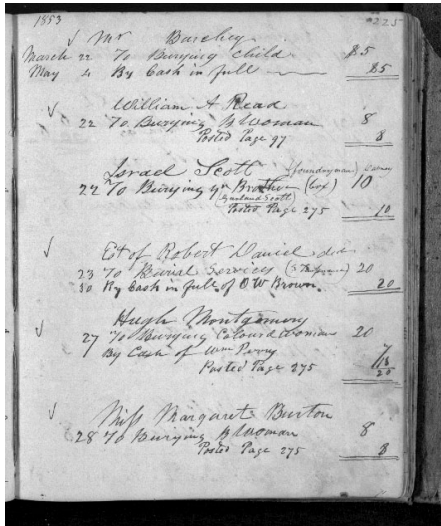 1853 225
Mr Barclay
March 22 To Burying Child $5
May 4 By Cash in full $5
William A Read
22 To Burying B Woman 8
Posted Page 97 8
Israel Scott (foundryman)
22 To Burying yr Brother (box) 10
(Garland Scott)
Posted Page 275 10
Et of Robert Daniel decd
23 To Burial Services 20
30 By Cash in full of O W Brown. 20
Hugh Montgomery
27 To Burying Coloured Woman 20
By Cash of Wm Perry 7
Posted Page 275 13
20
Miss Margaret Burton
28 To Burying B Woman 8
Posted Page 275 8